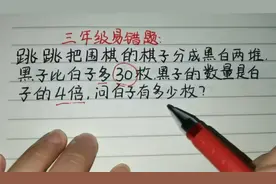 三年级易错题:
跳跳把围棋的棋子分成黑白两堆,
黑子比白子多30枚,黑子的数量是白
子的4倍,问白子有多少枚?